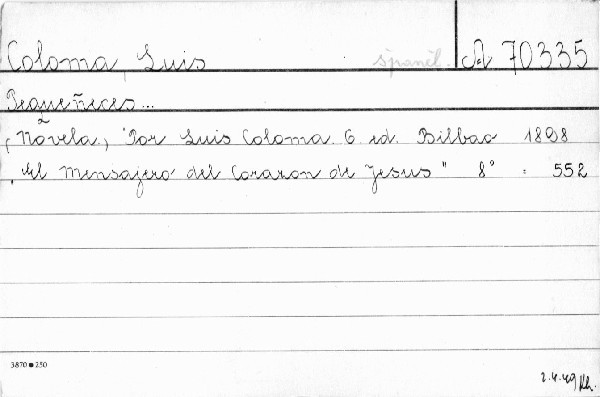 Coloma, Luis španěl. A 70335
Pequeñeces...
(Novela,) Por Luis Coloma. 6. ed. Bilbao 1898
„El Mensajero del Corazon de Jesus" 8° : 552
3870 ■ 250
2.4.49 Kh.